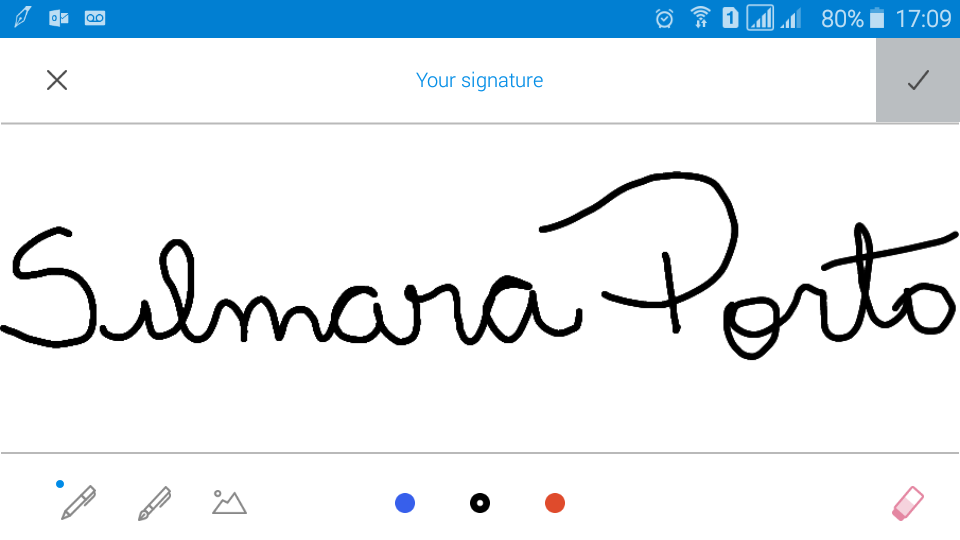 1 80% 17:09
Your signature
Silmara Porto